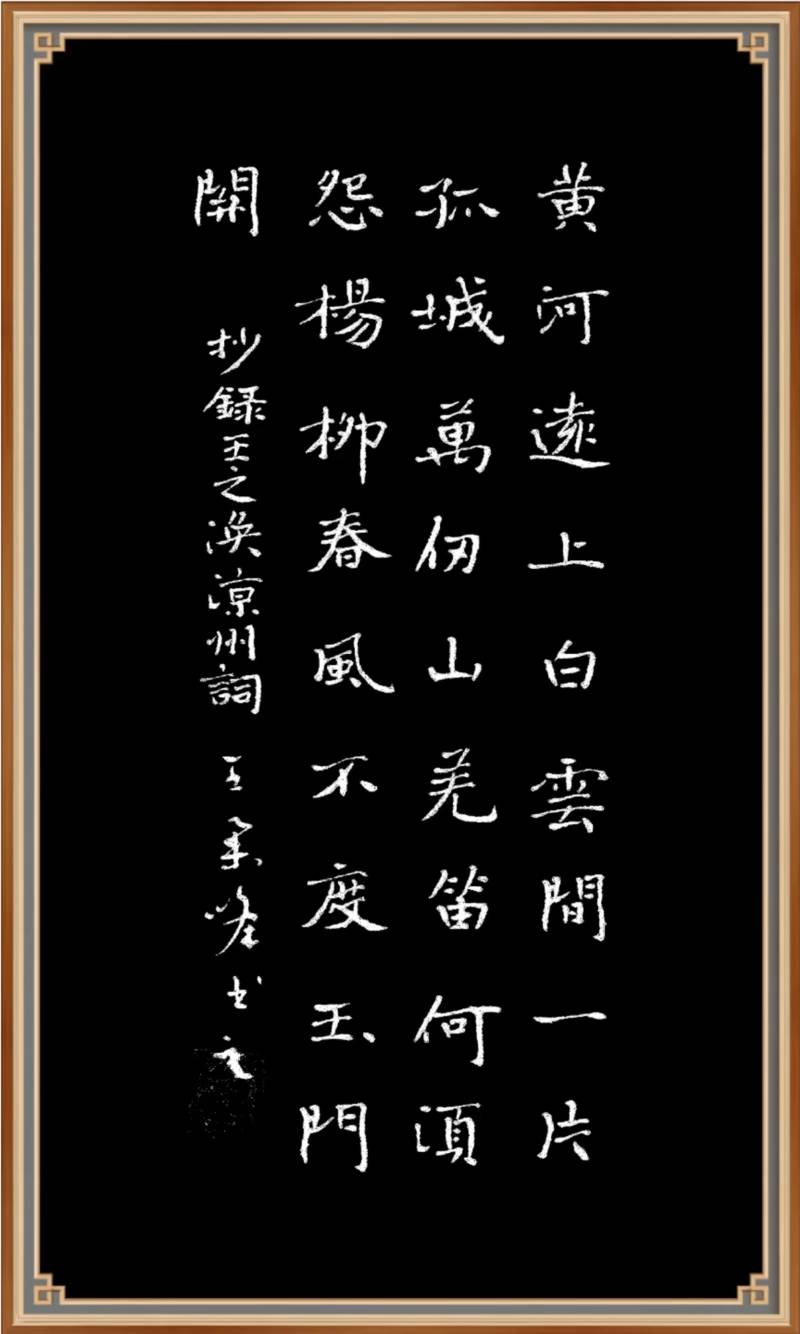 黄河遠上白雲間一片
孤城萬仞山羌笛何須
怨楊柳春風不度玉門
開 抄録王之渙涼州詞 王书之